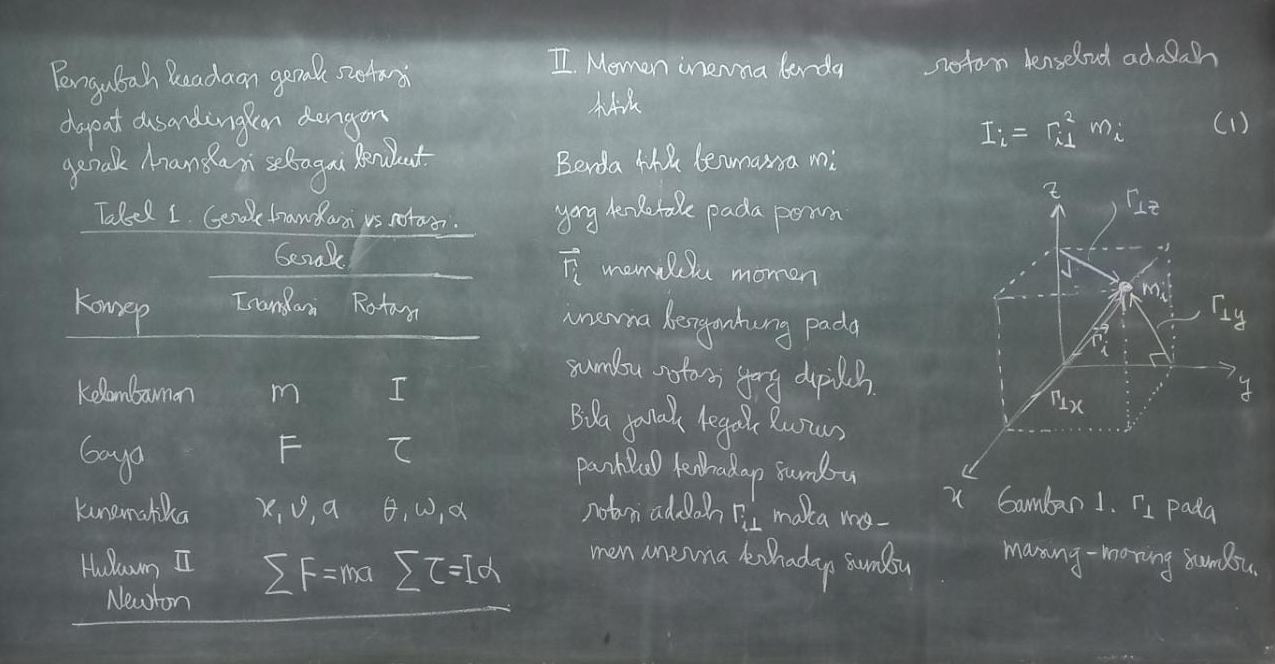 Pengubah keadaan gerak rotasi
dapat disandingkan dengan
gerak translasi sebagai berikut.
Tabel 1. Gerak translasi vs rotasi.
Gerak
Konsep Translasi Rotasi
Kelembaman m I
Gaya F τ
Kinematika x, v, a θ, ω, α
Hukum II ∑F=ma ∑τ=Iα
Newton
II. Momen inersia benda
titik
Benda titik bermassa mᵢ
yang terletak pada posisi
r⃗ᵢ memiliki momen
inersia bergantung pada
sumbu rotasi yang dipilih.
Bila jarak tegak lurus
partikel terhadap sumbu
rotasi adalah rᵢ⊥ maka mo-
men inersia terhadap sumbu
rotasi tersebut adalah
Iᵢ = rᵢ⊥² mᵢ (1)
z
r⊥z
mᵢ
r⊥y
r⃗ᵢ
y
r⊥x
x
Gambar 1. r⊥ pada
masing-masing sumbu.